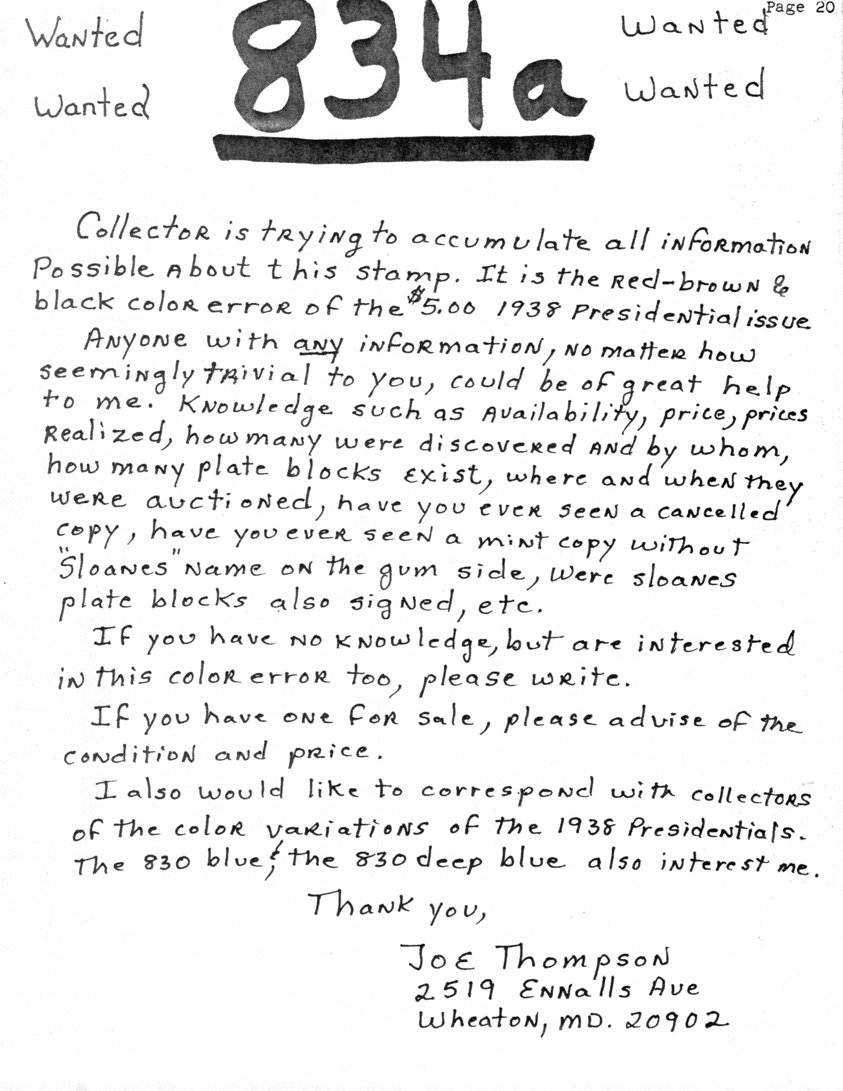 Page 20
Wanted 834a Wanted
Wanted Wanted
Collector is trying to accumulate all information
Possible About this stamp. It is the Red-brown &
black color error of the $5.00 1938 Presidential issue
Anyone with any information, no matter how
seemingly trivial to you, could be of great help
to me. Knowledge such as Availability, price, prices
Realized, how many were discovered and by whom,
how many plate blocks exist, where and when they
were auctioned, have you ever seen a cancelled
copy, have you ever seen a mint copy without
"Sloanes" Name on the gum side, were sloanes
plate blocks also signed, etc.
If you have no knowledge, but are interested
in this color error too, please write.
If you have one for sale, please advise of the
condition and price.
I also would like to correspond with collectors
of the color variations of the 1938 Presidentials.
The 830 blue, & the 830 deep blue also interest me.
Thank you,
Joe Thompson
2519 Ennalls Ave
Wheaton, MD. 20902